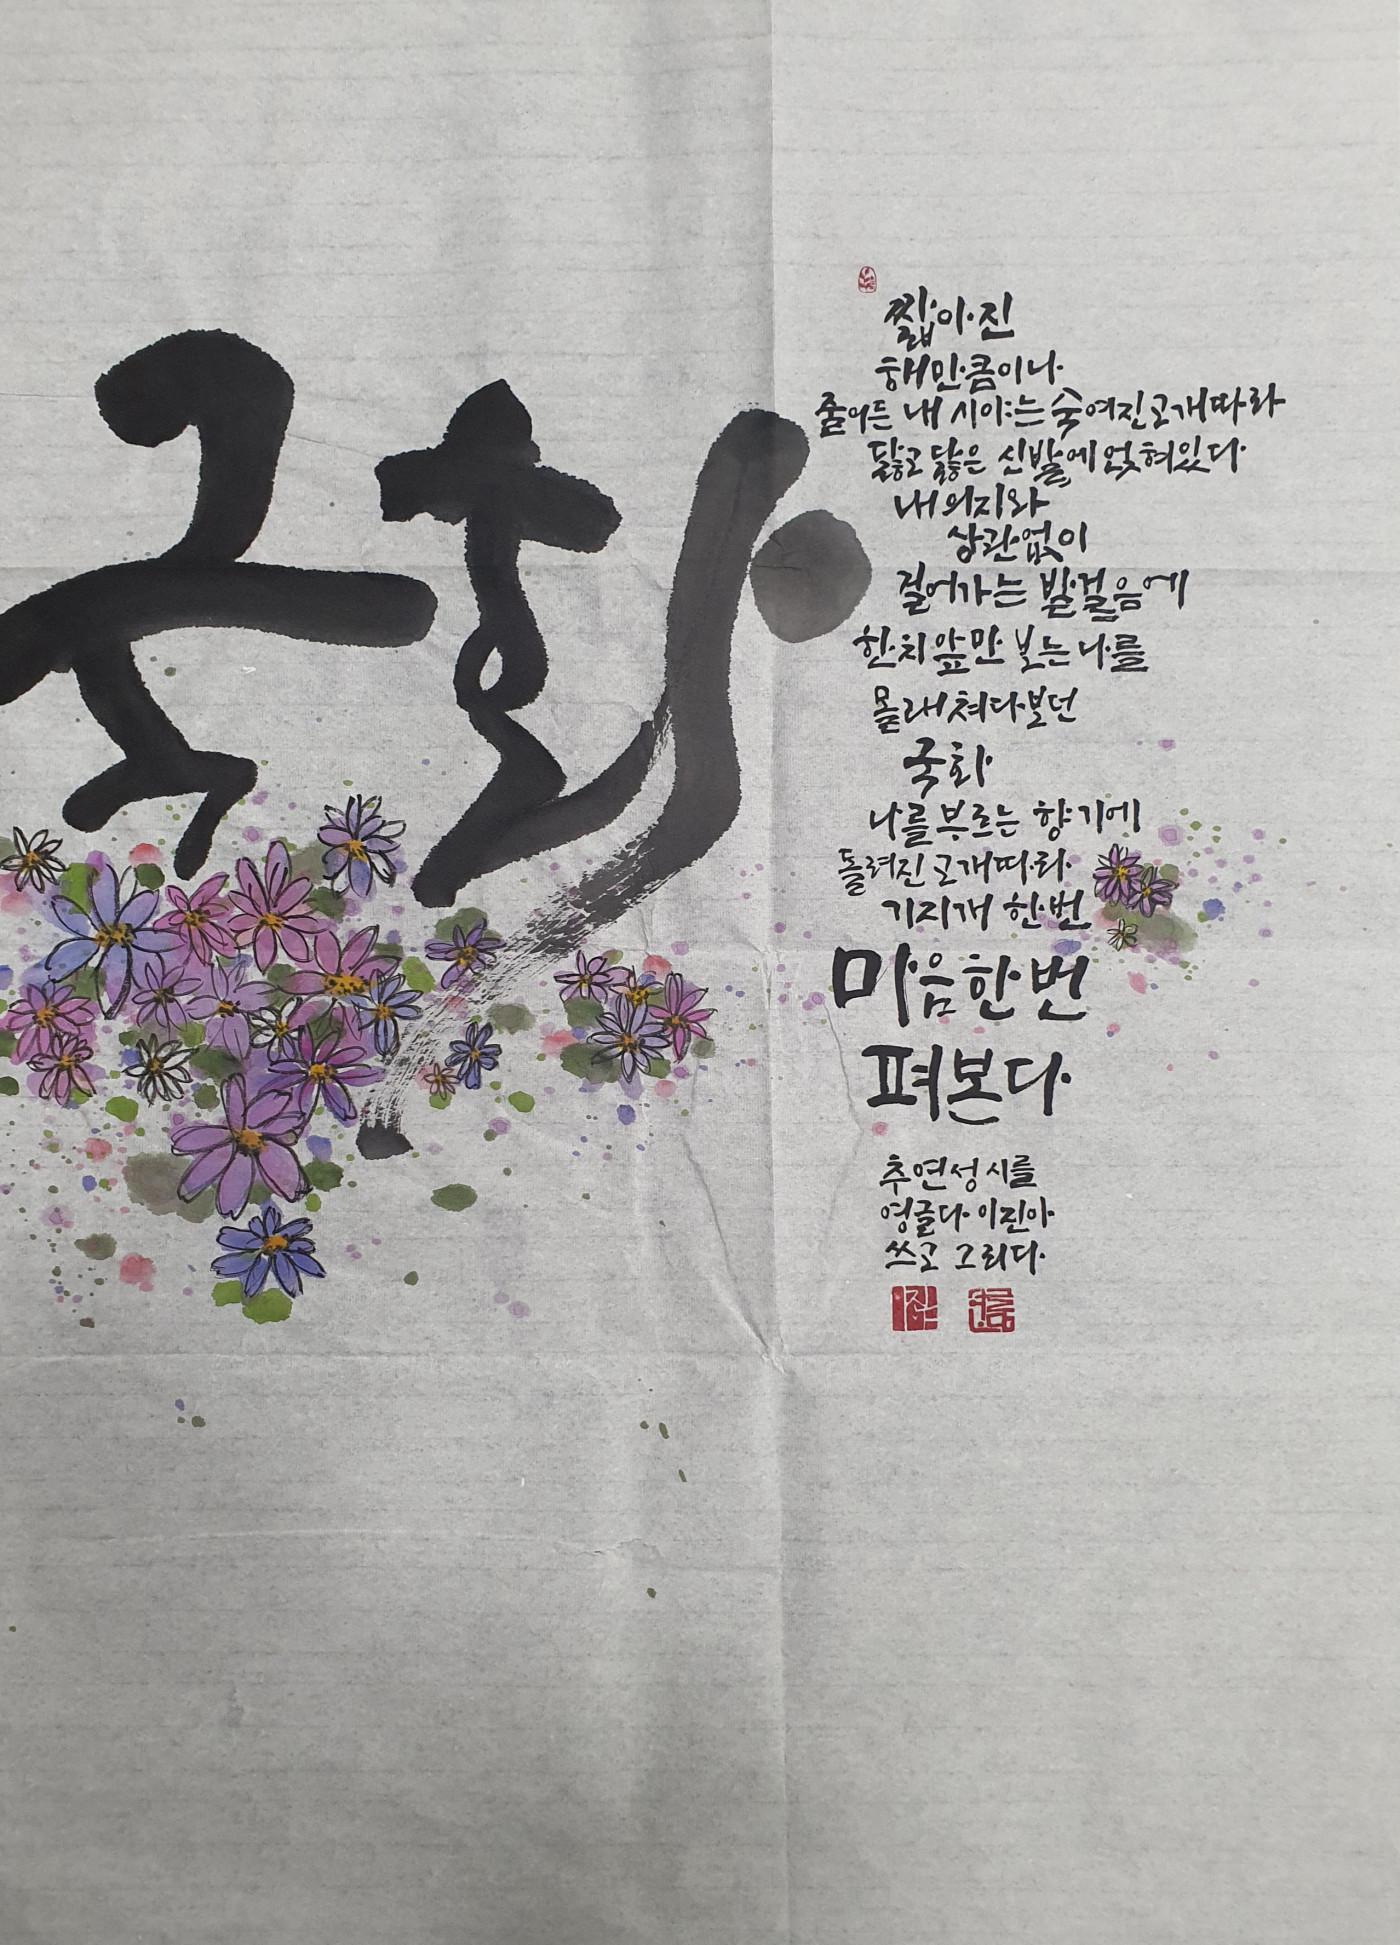 국화
짧아진
해만큼이나
줄어든 내 시야는 숙여진 고개따라
닳고 닳은 신발에 얹혀있다
내 의지와
상관없이
걸어가는 발걸음에
한치 앞만 보는 나를
몰래 쳐다보던
국화
나를 부르는 향기에
돌려진 고개따라
기지개 한번
마음 한번
펴본다
추연성 시를
영글다 이진아
쓰고 그리다